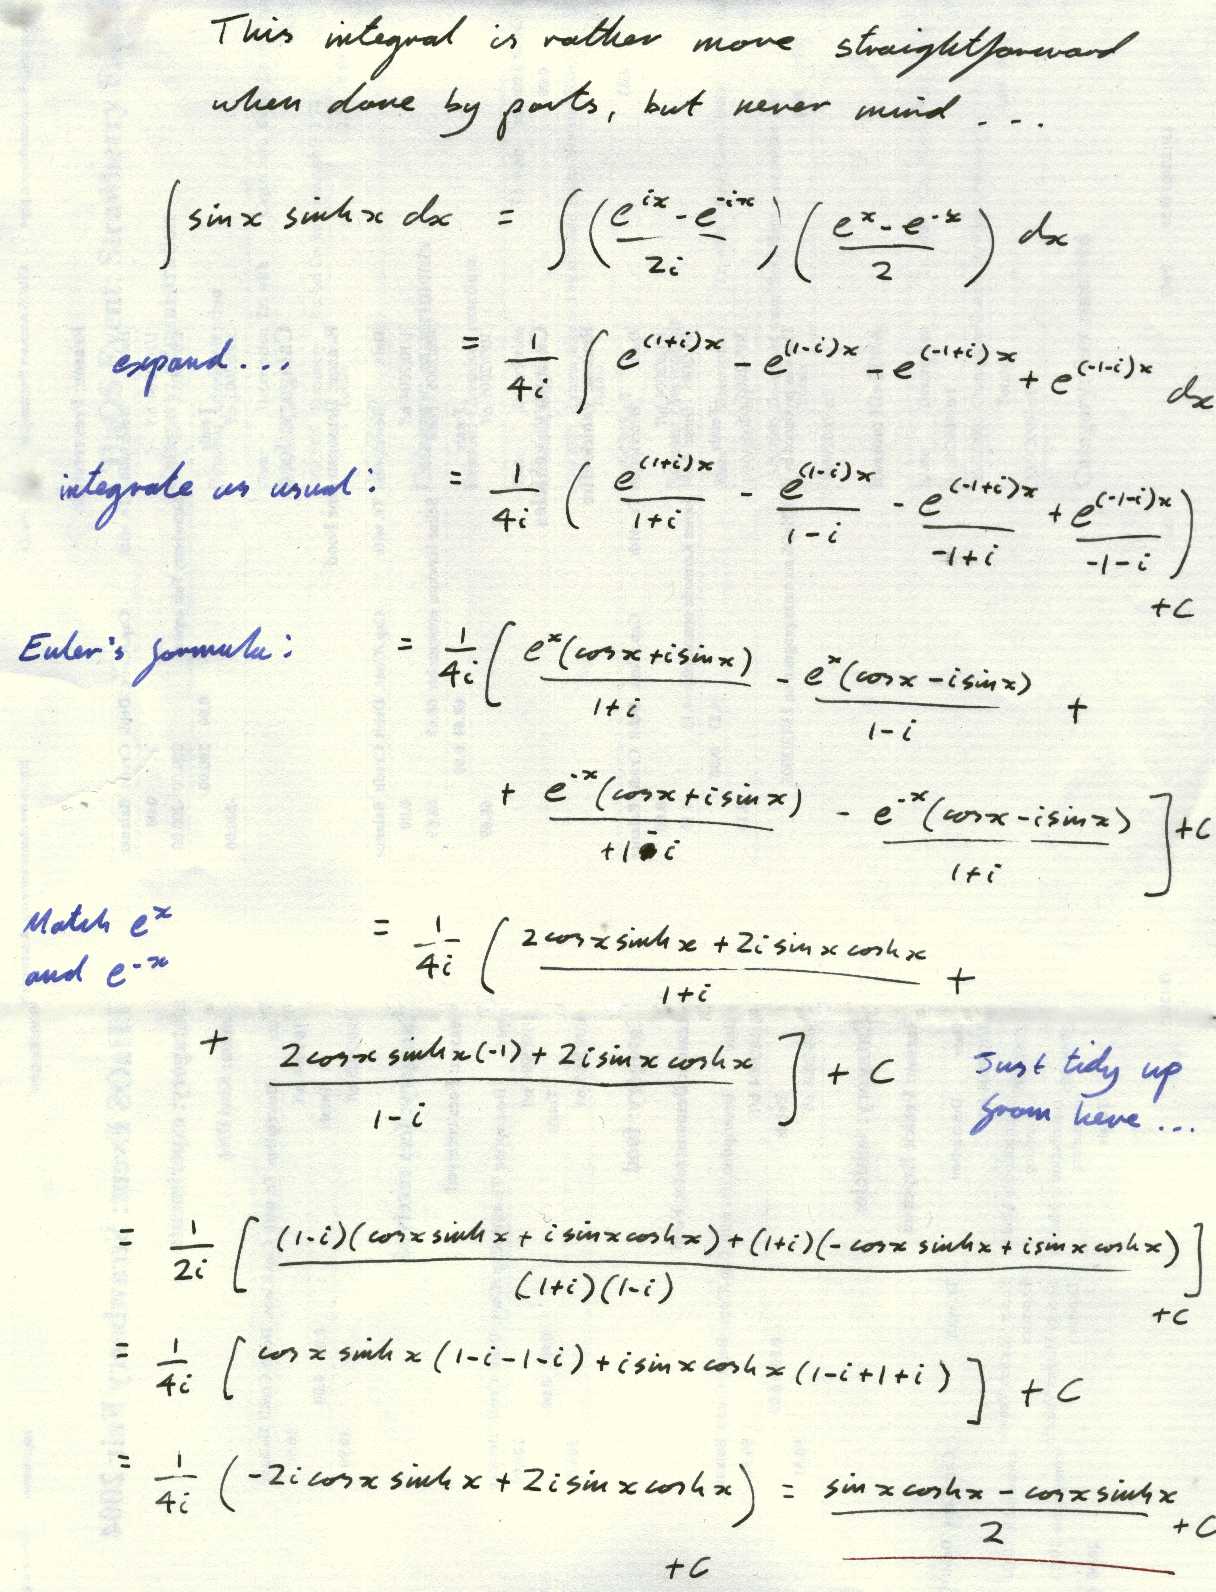 This integral is rather more straightforward
when done by parts, but never mind ...
∫ sin x sinh x dx = ∫ ( (e^{ix} - e^{-ix}) / 2i ) ( (e^x - e^{-x}) / 2 ) dx
expand... = 1/4i ∫ e^{(1+i)x} - e^{(1-i)x} - e^{(-1+i)x} + e^{(-1-i)x} dx
integrate as usual: = 1/4i ( e^{(1+i)x} / (1+i) - e^{(1-i)x} / (1-i) - e^{(-1+i)x} / (-1+i) + e^{(-1-i)x} / (-1-i) )
+C
Euler's formula: = 1/4i [ e^x(cosx+isinx) / (1+i) - e^x(cosx-isinx) / (1-i) +
+ e^{-x}(cosx+isinx) / (+1-i) - e^{-x}(cosx-isinx) / (1+i) ] +C
Match e^x
and e^{-x}
= 1/4i ( (2cosx sinh x + 2i sin x cosh x) / (1+i) +
+ (2cosx sinh x (-1) + 2i sin x cosh x) / (1-i) ] + C
Just tidy up
from here ...
= 1/2i [ ((1-i)(cosx sinh x + i sinx cosh x) + (1+i)(-cosx sinh x + isin x cosh x)) / ((1+i)(1-i)) ]
+C
= 1/4i [ cosx sinh x (1-i-1-i) + i sin x cosh x (1-i+1+i) ] + C
= 1/4i ( -2i cosx sinh x + 2i sin x cosh x ) = (sin x cosh x - cosx sinh x) / 2 +C
+C